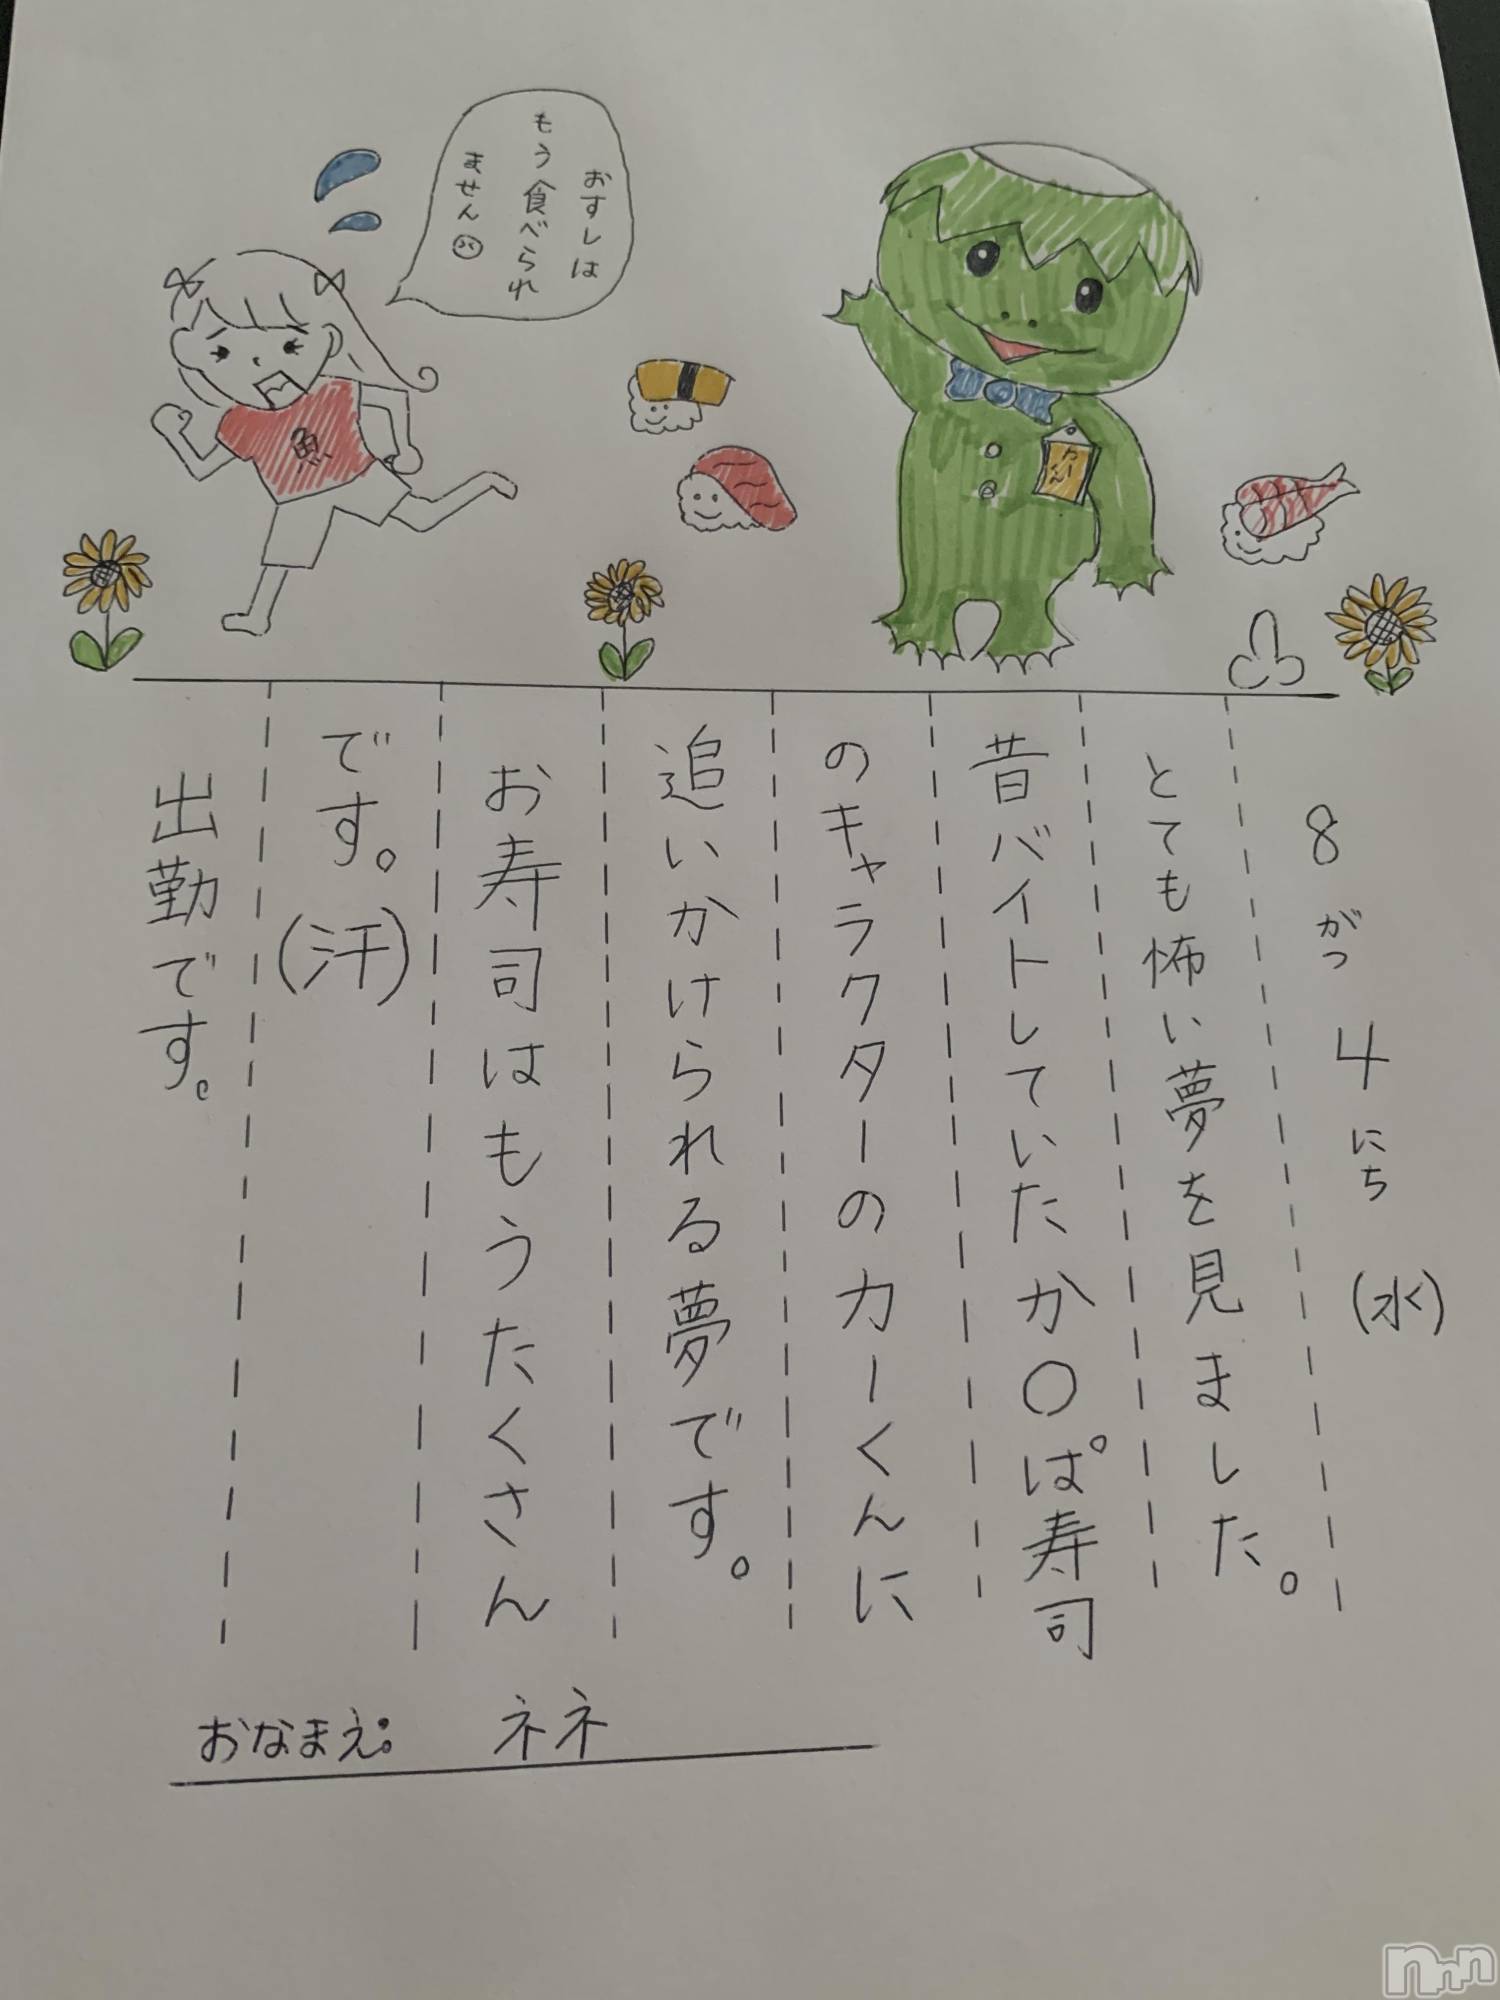 おすしは
もう食べられ
ません
魚
かーくん
8がつ4にち(水)
とても怖い夢を見ました。
昔バイトしていたか〇ぱ寿司
のキャラクターのカーくんに
追いかけられる夢です。
お寿司はもうたくさん
です。(汗)
出勤です。
おなまえ: ネネ
nnn